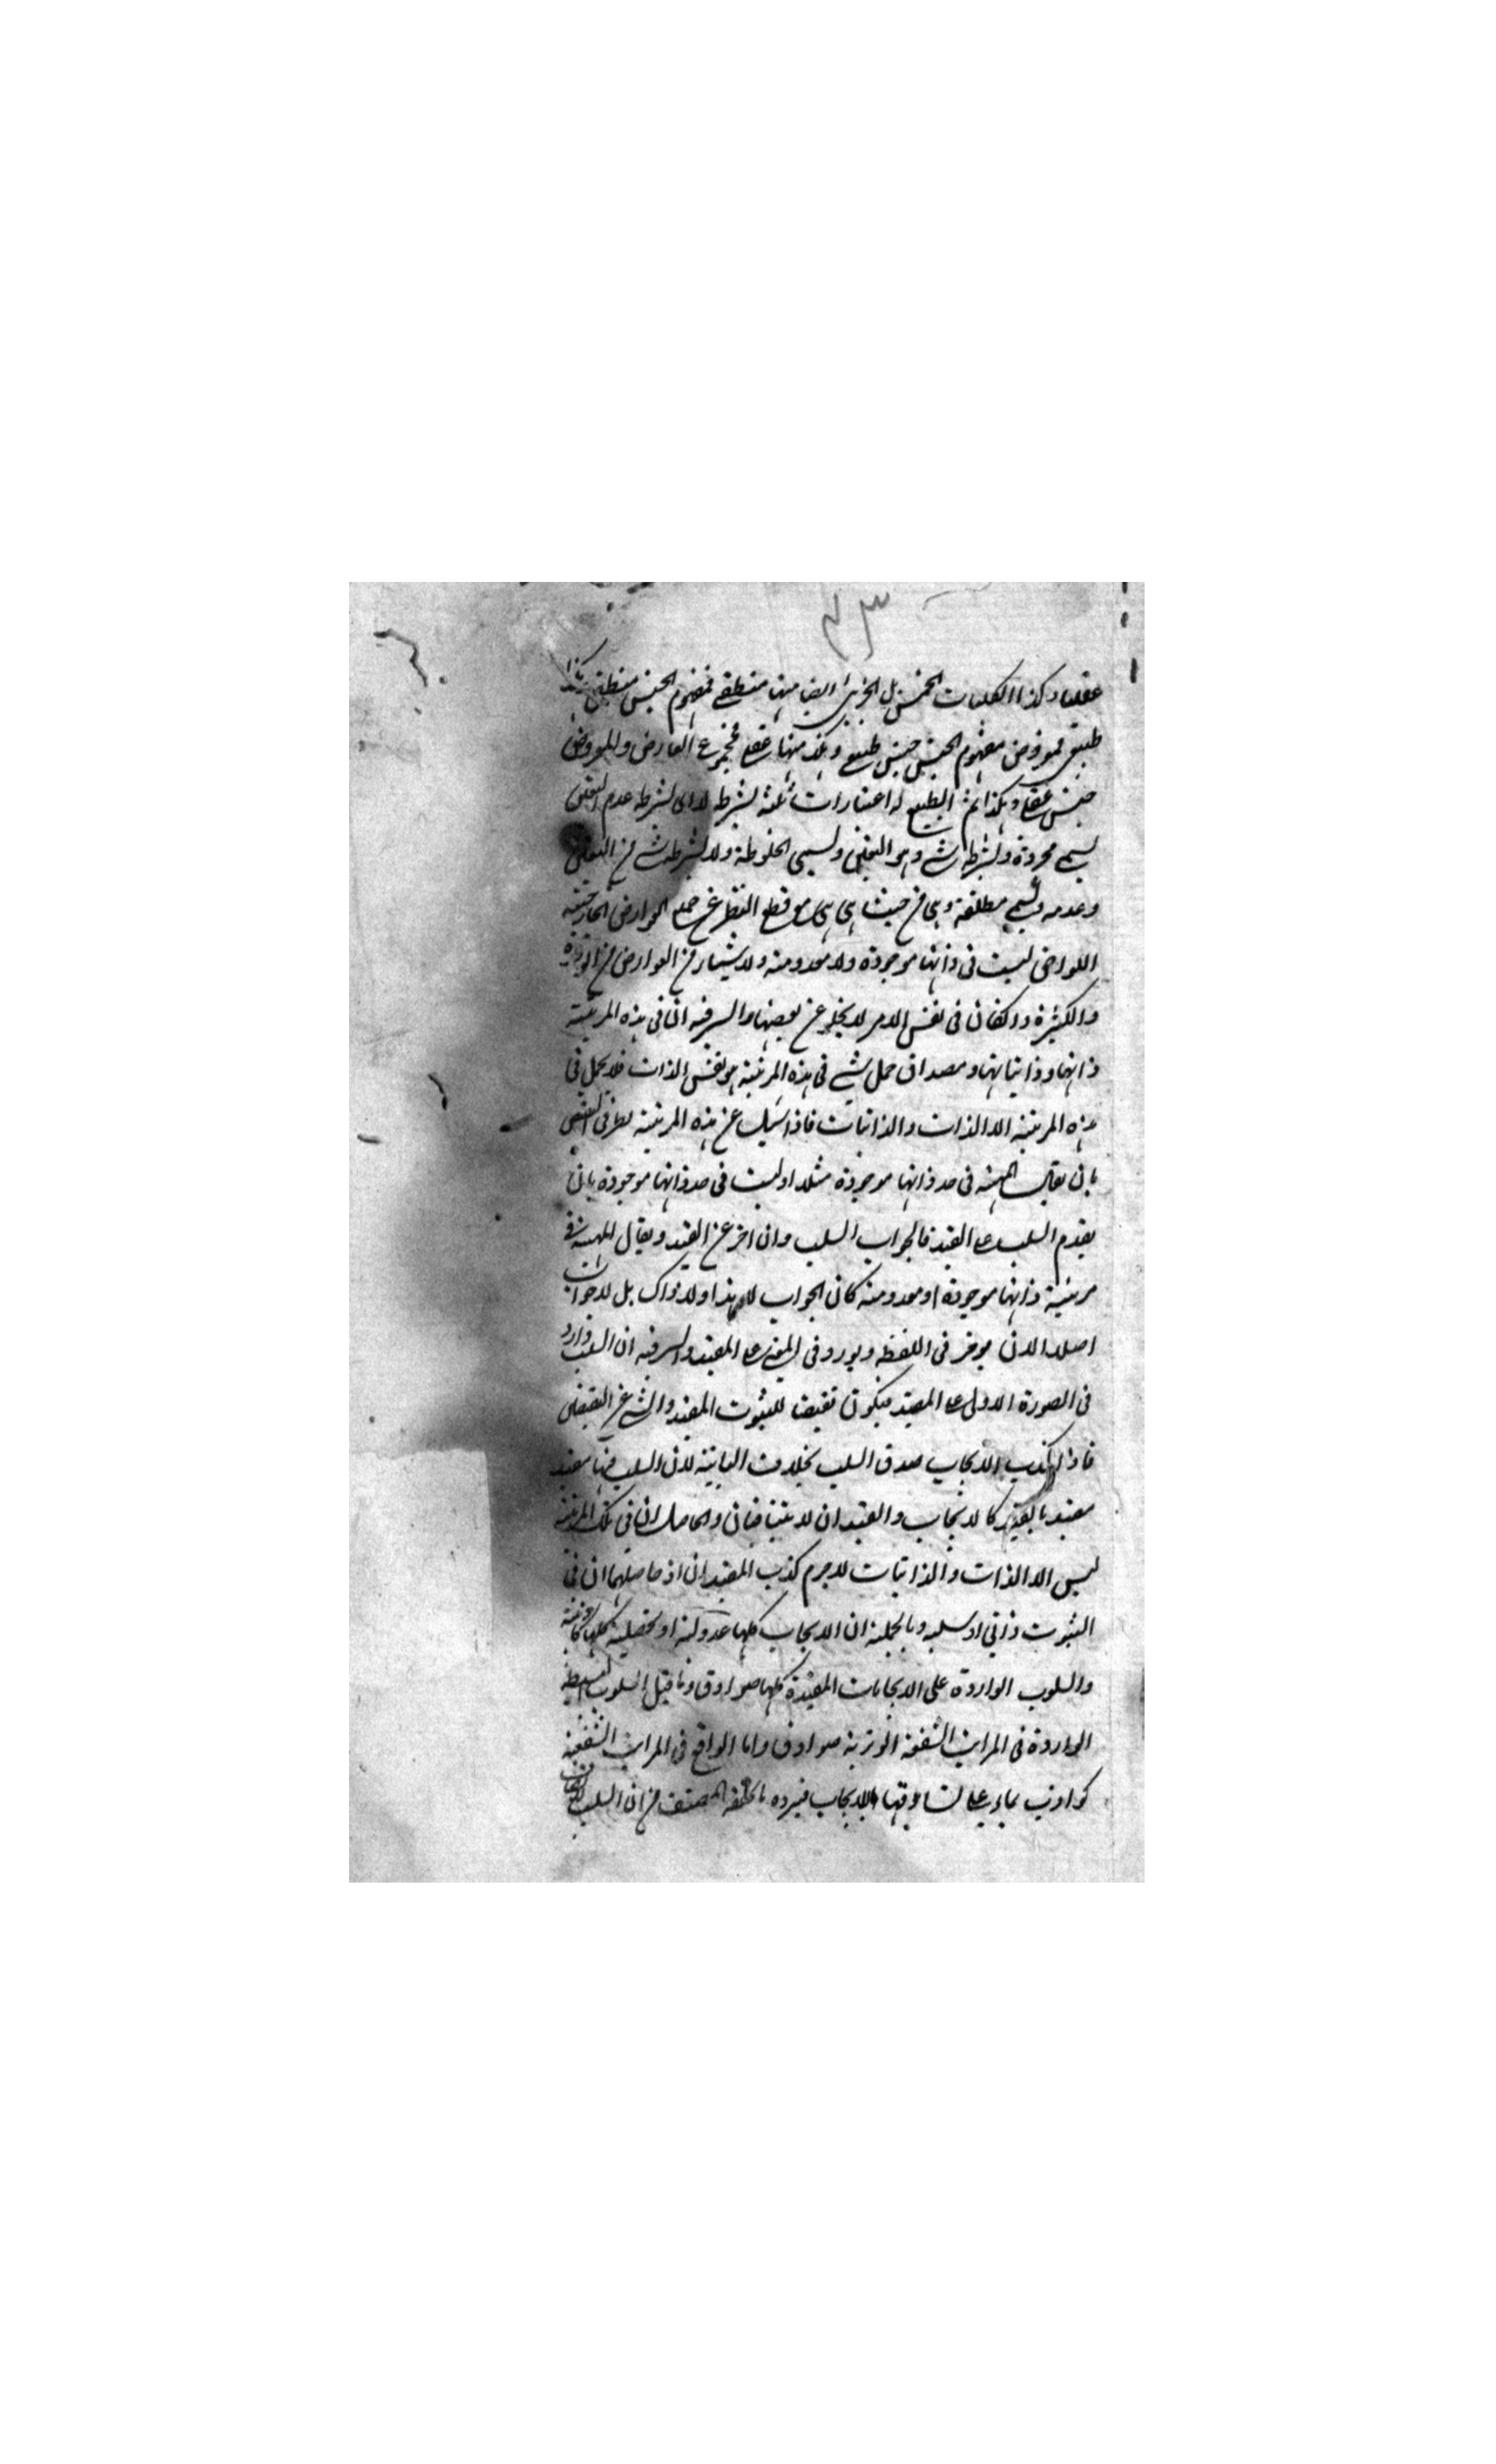 ٤٣
عقليا وكذا الكليات الخمس بل الجزئي ايضا منها منطقي فمفهوم الجنس منطقي ومنها
طبيعي فمعروض مفهوم الجنس جنس طبيعي وهكذا منها عقلي فمجموع العارض والمعروض
جنس عقلي وهكذا ثم الطبيعي له اعتبارات ثلثة بشرط لا اى بشرط عدم التعين
يسمى مجردة وبشرط شيء وهو التعين وتسمى المخلوطة ولا بشرط شيء من التعين
وعدمه وتسمى مطلقة وهى من حيث هى هى مع قطع النظر عن جميع العوارض الخارجة
اللواحق ليست في ذاتها موجودة ولا معدومة ولا شيئا من العوارض من الوحدة
والكثرة وان كان في نفس الامر لا يخلو عن بعضها والسر فيه ان في هذه المرتبة
ذاتها وذاتياتها ومصداق حمل شيء في هذه المرتبة هو نفس الذات فلا يحمل في
هذه المرتبة الا الذات والذاتيات فاذا سئل عن هذه المرتبة بطرفي النقيض
بان يقال الماهية في حد ذاتها موجودة مثلا او ليست في حد ذاتها موجودة بان
يقدم السلب على القيد فالجواب السلب وان اخر عن القيد ويقال المهية في
مرتبة ذاتها موجودة او معدومة كان الجواب لا هذا ولا ذاك بل لا جواب
اصلا الان في اللفظ ويورد في المعنى على المقيد والسر فيه ان السلب وارد
في الصورة الاولى على المقيد فيكون نقيضا للثبوت المقيد والشيء عن النقيض
فاذا كذب الايجاب صدق السلب بخلاف الثانية لان السلب فيها مقيد
مقيد بالقيد كالايجاب والقيدان لا يتناقضان والحاصل ان في تلك المرتبة
ليس الا الذات والذاتيات لا جرم كذب المقيدان اذ حاصلهما ان في
الثبوت ذاتي او سلبه وبالجملة ان الايجاب كلها عدولية او تحصيلية كلها كاذبة
والسلوب الواردة على الايجابات المقيدة كلها صوادق وما قيل السلوب البسيطة
الواردة في المراتب الشفعية الوترية صوادق واما الواقع في المراتب الشفعية
كواذب بناء على تساوقها للايجاب فيرده ما حققه المصنف من ان السلب